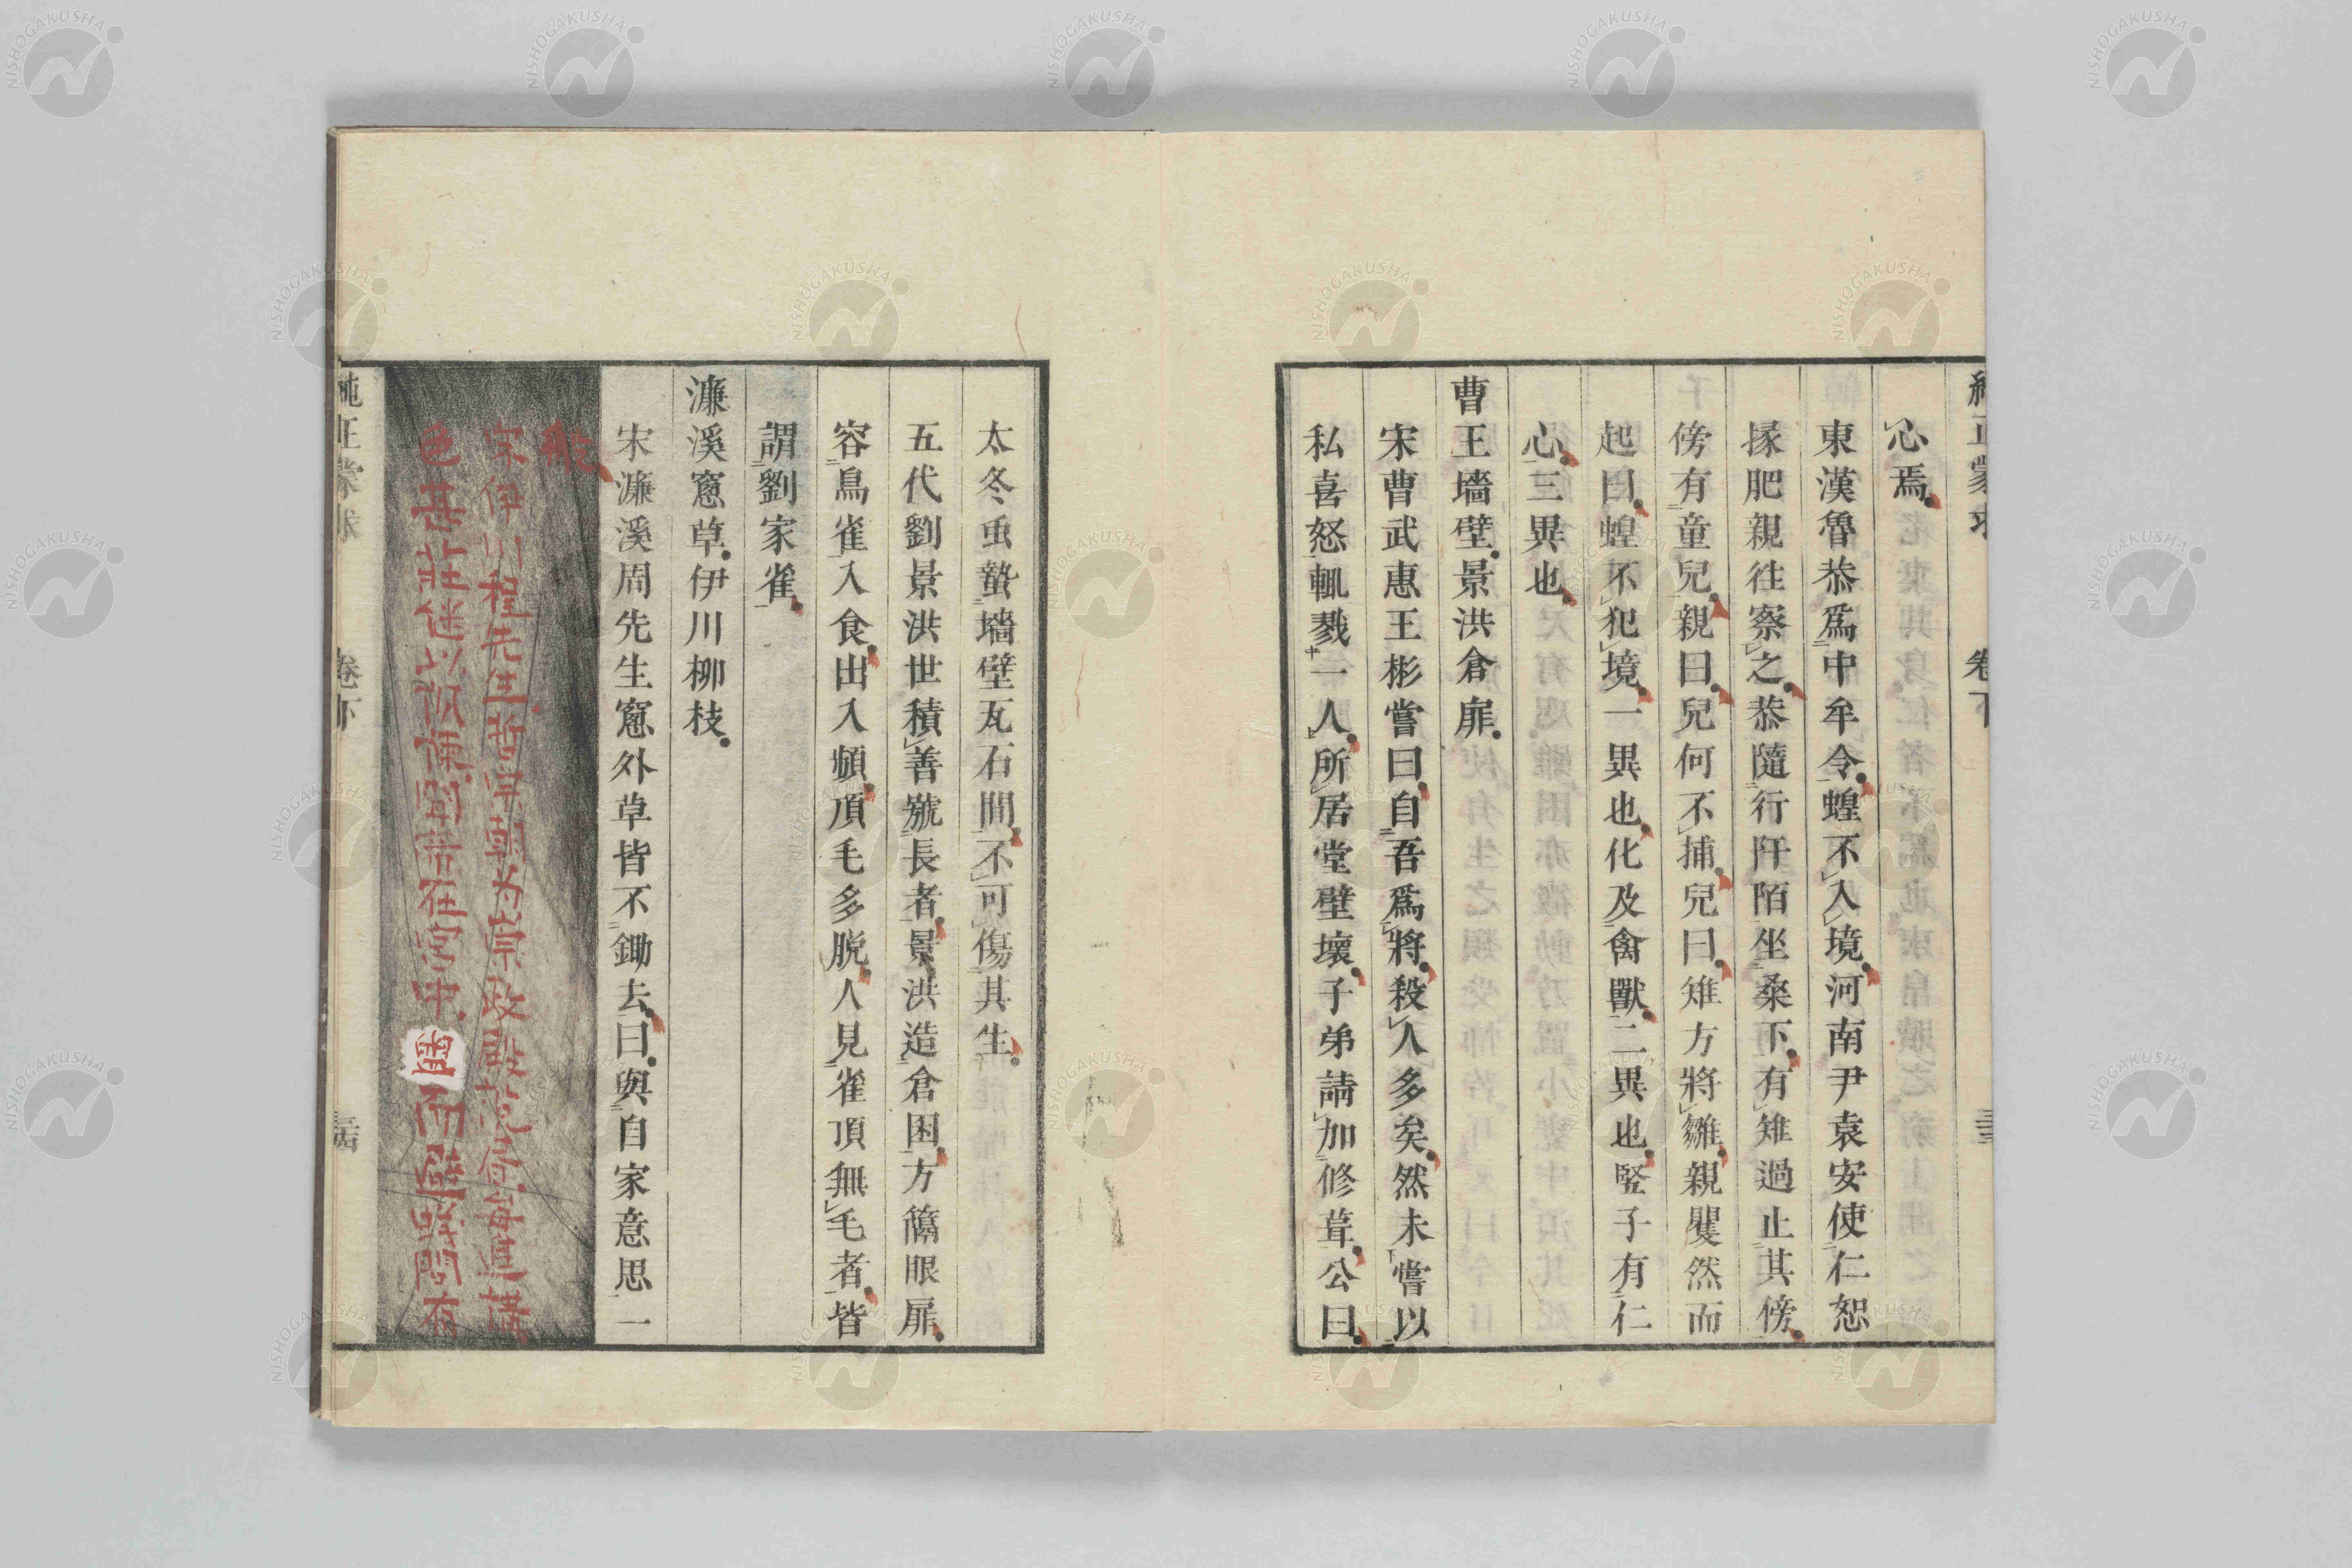 純正蒙求 卷下
心焉
東漢魯恭爲中牟令蝗不入境河南尹袁安使仁恕
掾肥親往察之恭隨行阡陌坐桑下有雉過止其傍
傍有童兒親曰兒何不捕兒曰雉方將雛親矍然而
起曰蝗不犯境一異也化及禽獸二異也竪子有仁
心三異也
曹王墻壁景洪倉扉
宋曹武惠王彬嘗曰自吾爲將殺人多矣然未嘗以
私喜怒輒戮一人所居堂壁壞子弟請加修葺公曰
太冬虫蟄墻壁瓦石間不可傷其生
五代劉景洪世積善號長者景洪造倉囷方簷眼扉
容鳥雀入食出入頻頂毛多脫人見雀頂無毛者皆
謂劉家雀
濂溪窻草伊川柳枝
宋濂溪周先生窻外草皆不鋤去曰與自家意思一
般
宋伊川程先生哲宗朝为崇政殿説書每進講
色甚莊继以諷諫聞帝在宫中盥而避蟻問有
純正蒙求 卷下
NISHOGAKUSHA